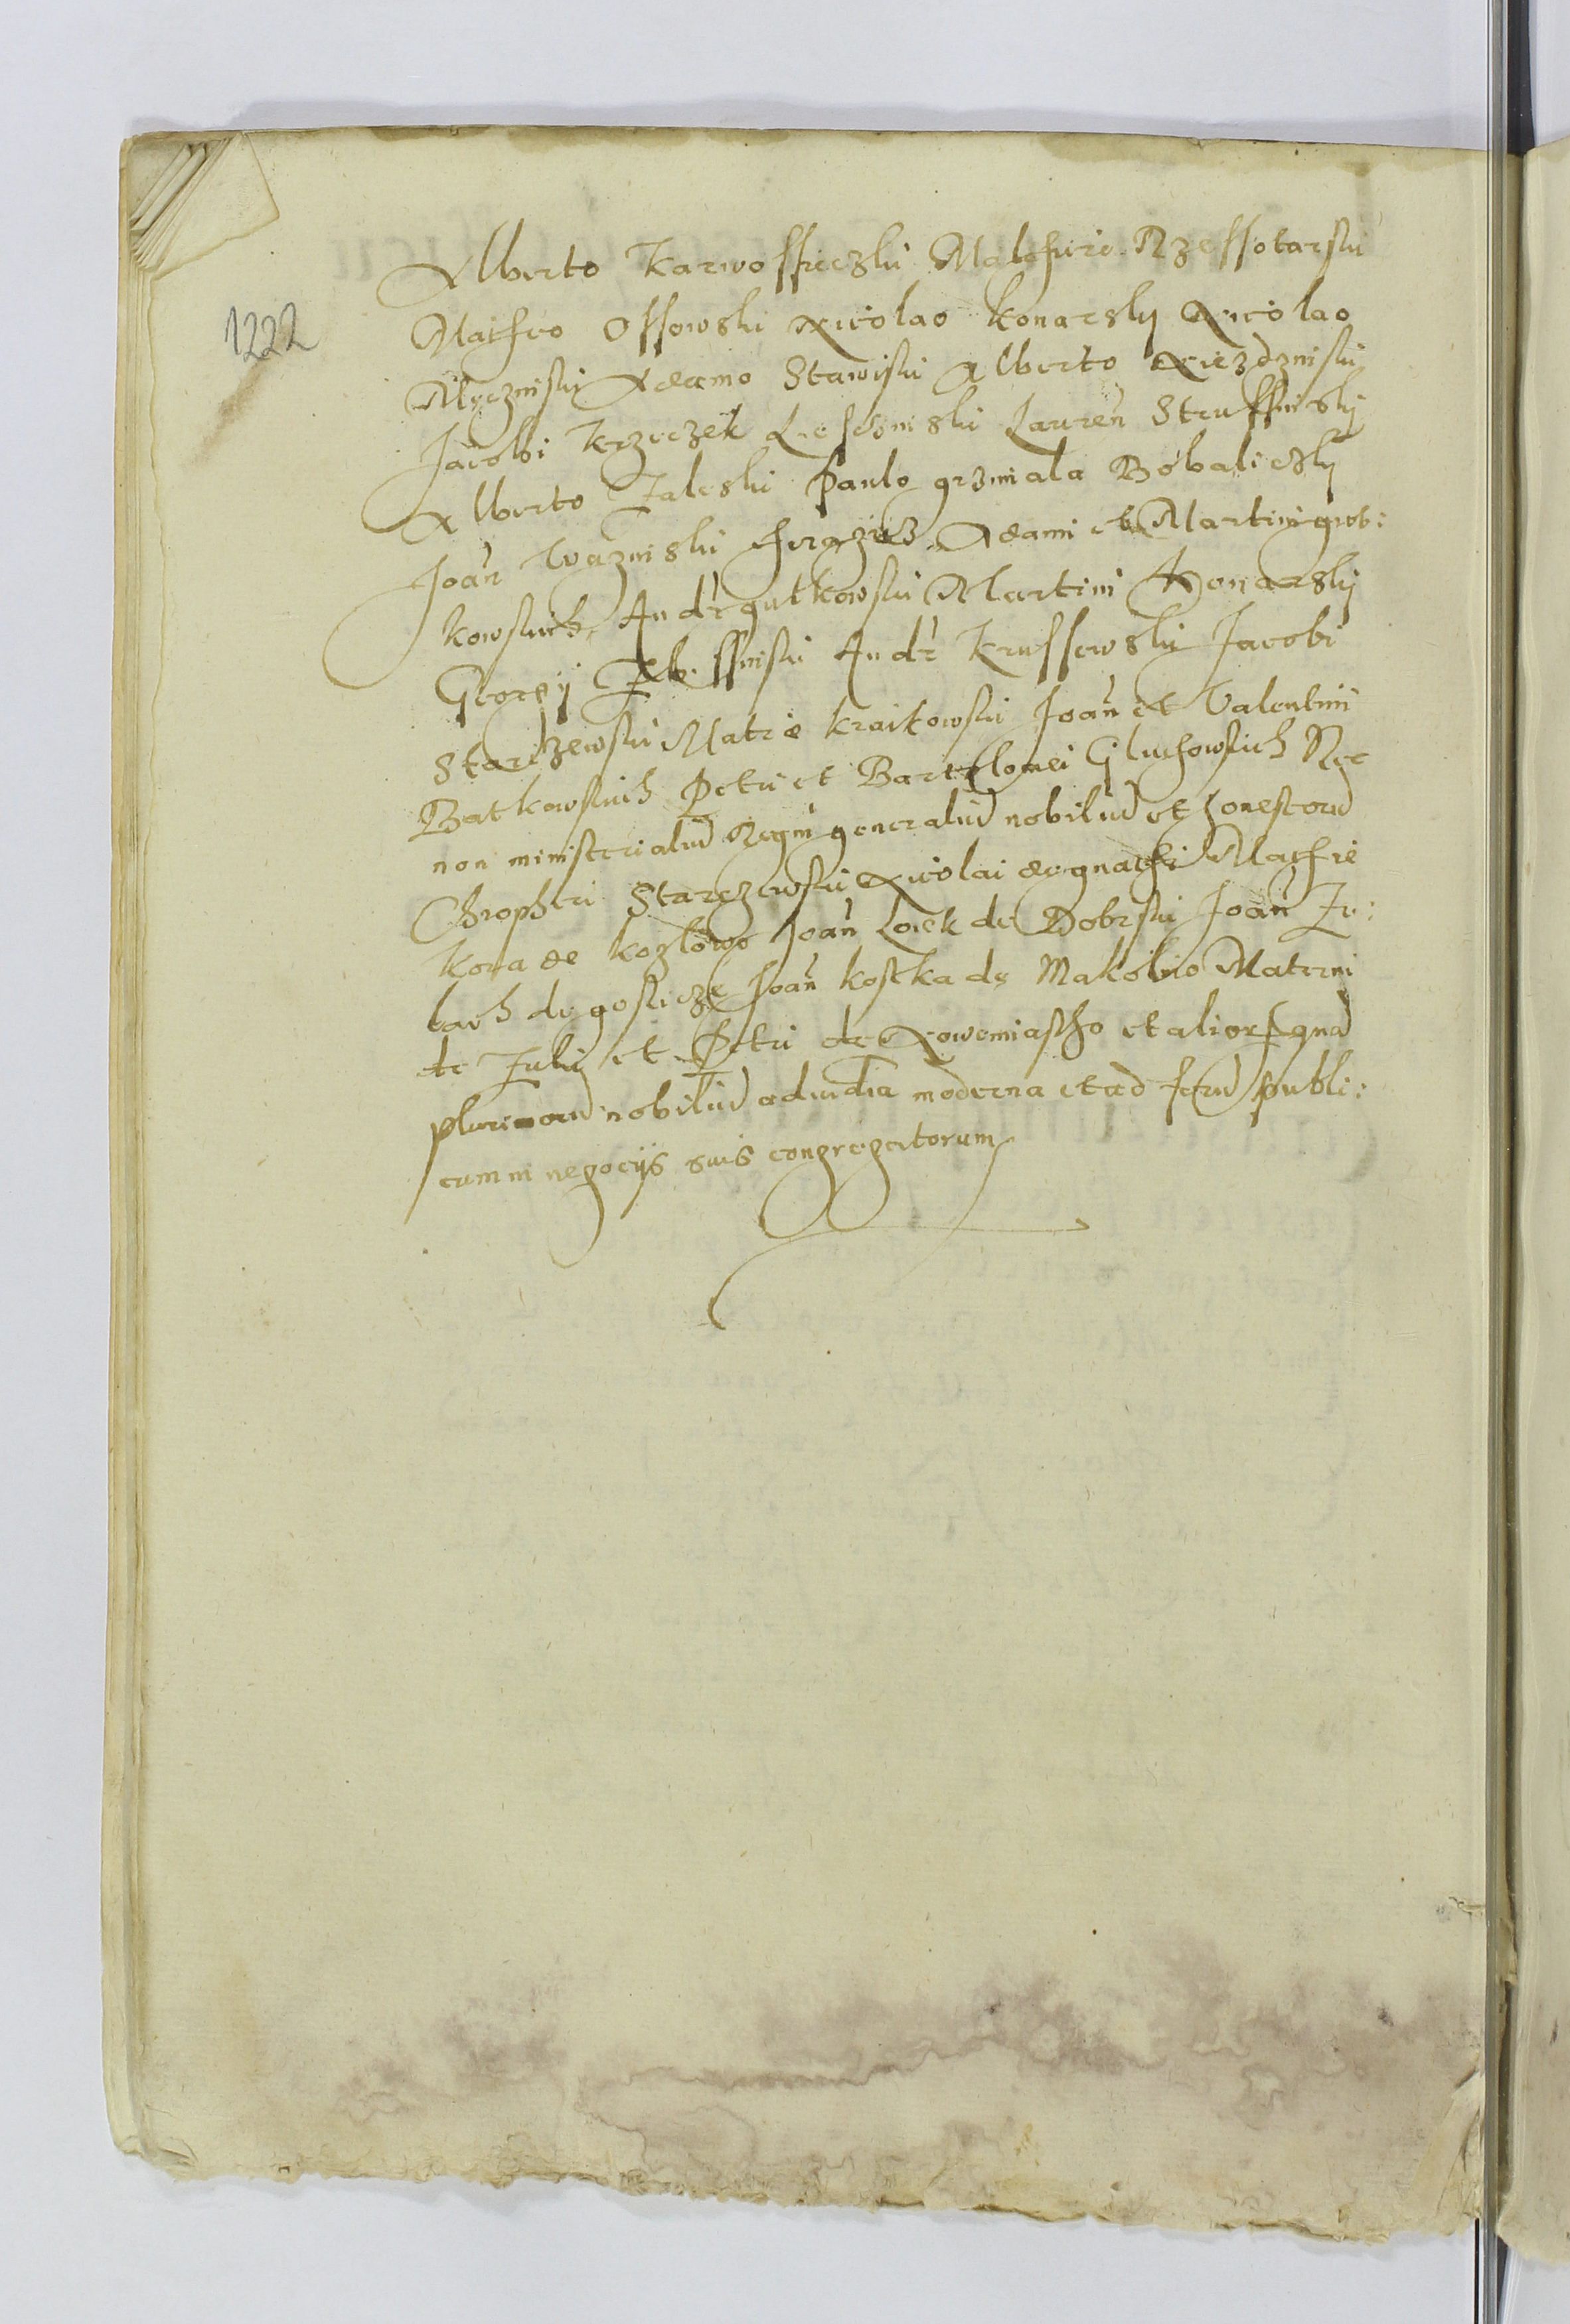 1222
Alberto Karwossieczki Malchiro Rzessotarski
Matheo Ossowski Nicolao Konarsky Nicolao
Męcznisky Adamo Stawiski Alberto Niezdzniski
Jacobi Krzeczek Lauren Strussinsky
Alberto Zaleski Paulo grzmiala Bobaliczky
Joan Wazniski Adami et Martini grob:
kowskich Andr gutkowski Martini Konarsky
Georgij Andr Krussewsky Jacobi
Starczewski Matie kraikowski Joan et Valentini
Batkowskich Petri et Bartolomei Gluchowskich Nec
non ministerialiu Regni generaliu nobiliu et honestoru
Chrophori Starczewski Nicolai de gnathi Mathie
Kora de kozlowo Joan Lock de Dobrski Joan Zu:
bach de goslicze Joan kostka de Makobio Materni
de Zuki et Petri de Nowemiastho et alior qua
plurimoru nobiliu ad iudia moderna et ad foru publi:
cum in negocijs suis congregatorum